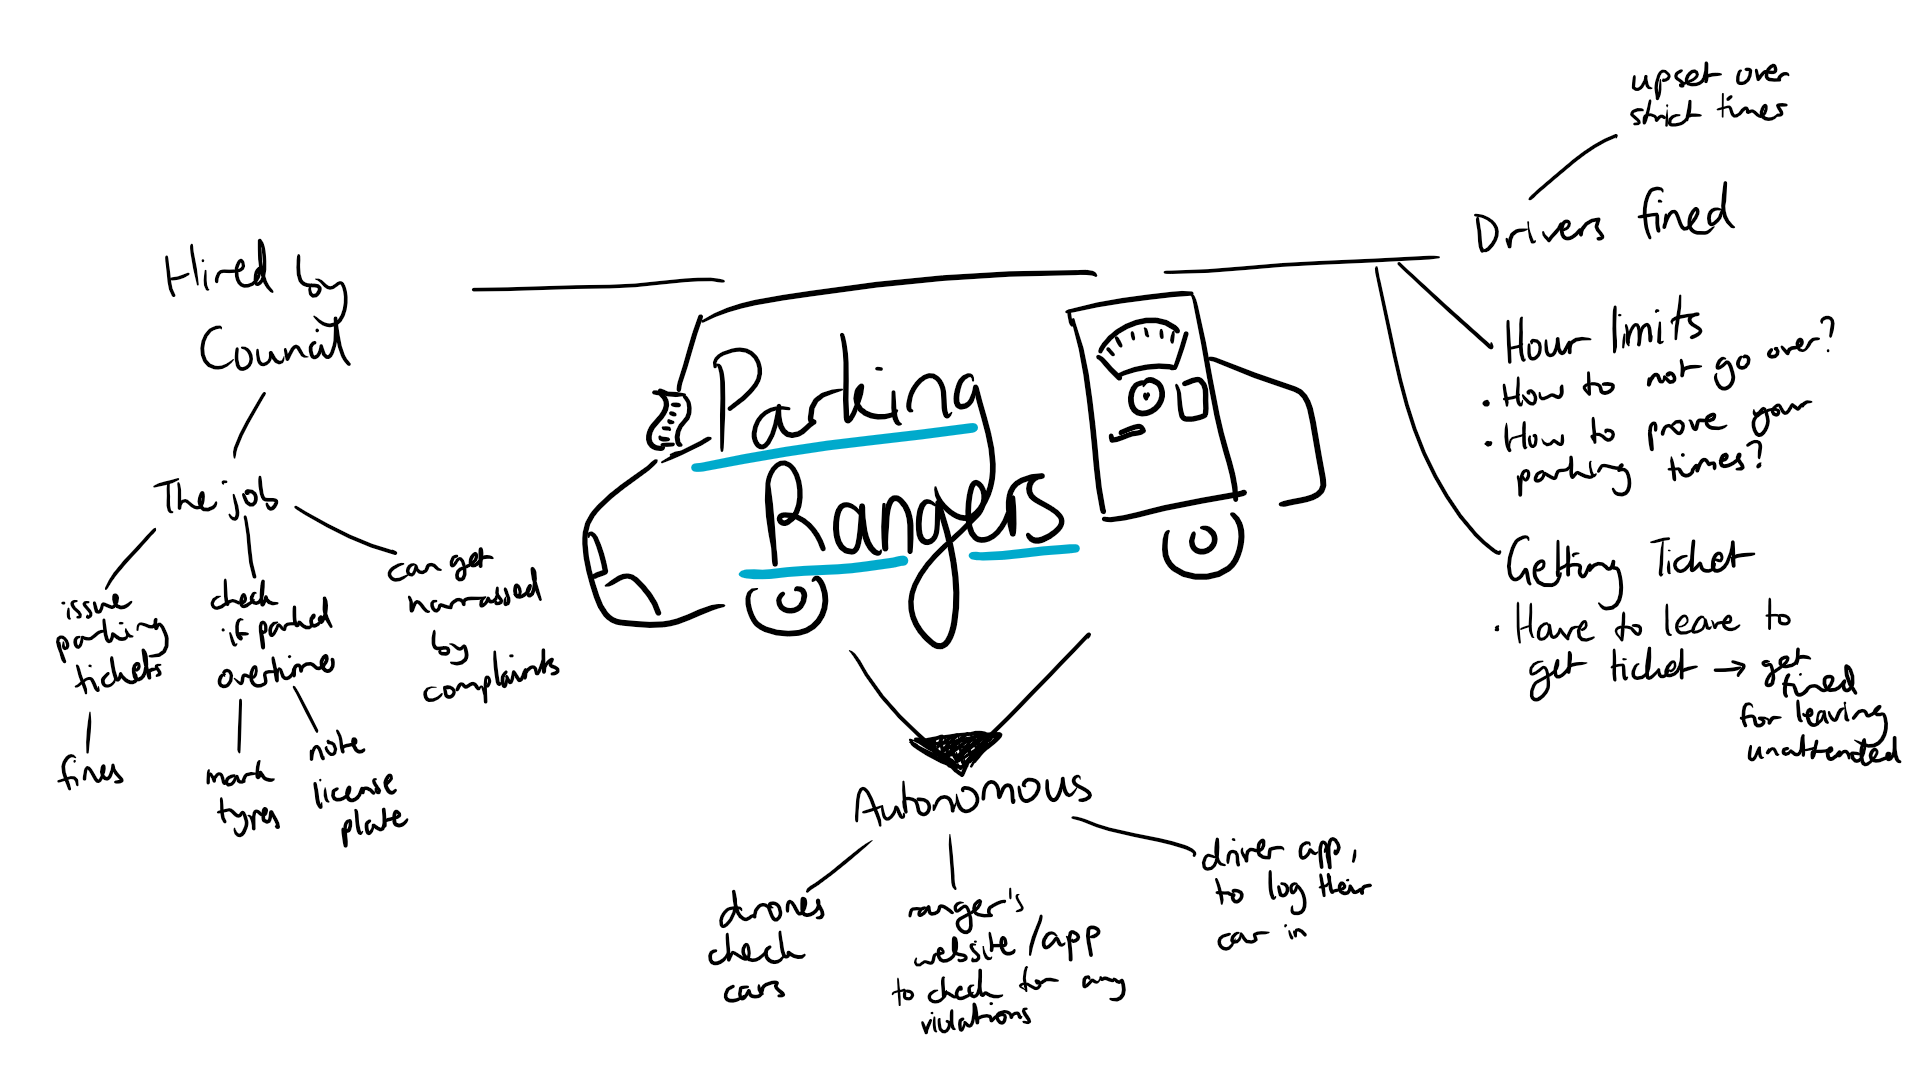 Parking
Rangers
Hired by
Council
The job
issue
parking
tickets
fines
check
if parked
overtime
mark
tyres
note
license
plate
can get
harrassed
by
complaints
upset over
strict times
Drivers fined
Hour limits
• How to not go over?
• How to prove your
parking times?
Getting Ticket
• Have to leave to
get ticket → get
fined
for leaving
unattended
Autonomous
drones
check
cars
ranger's
website/app
to check for any
violations
driver app,
to log their
car in